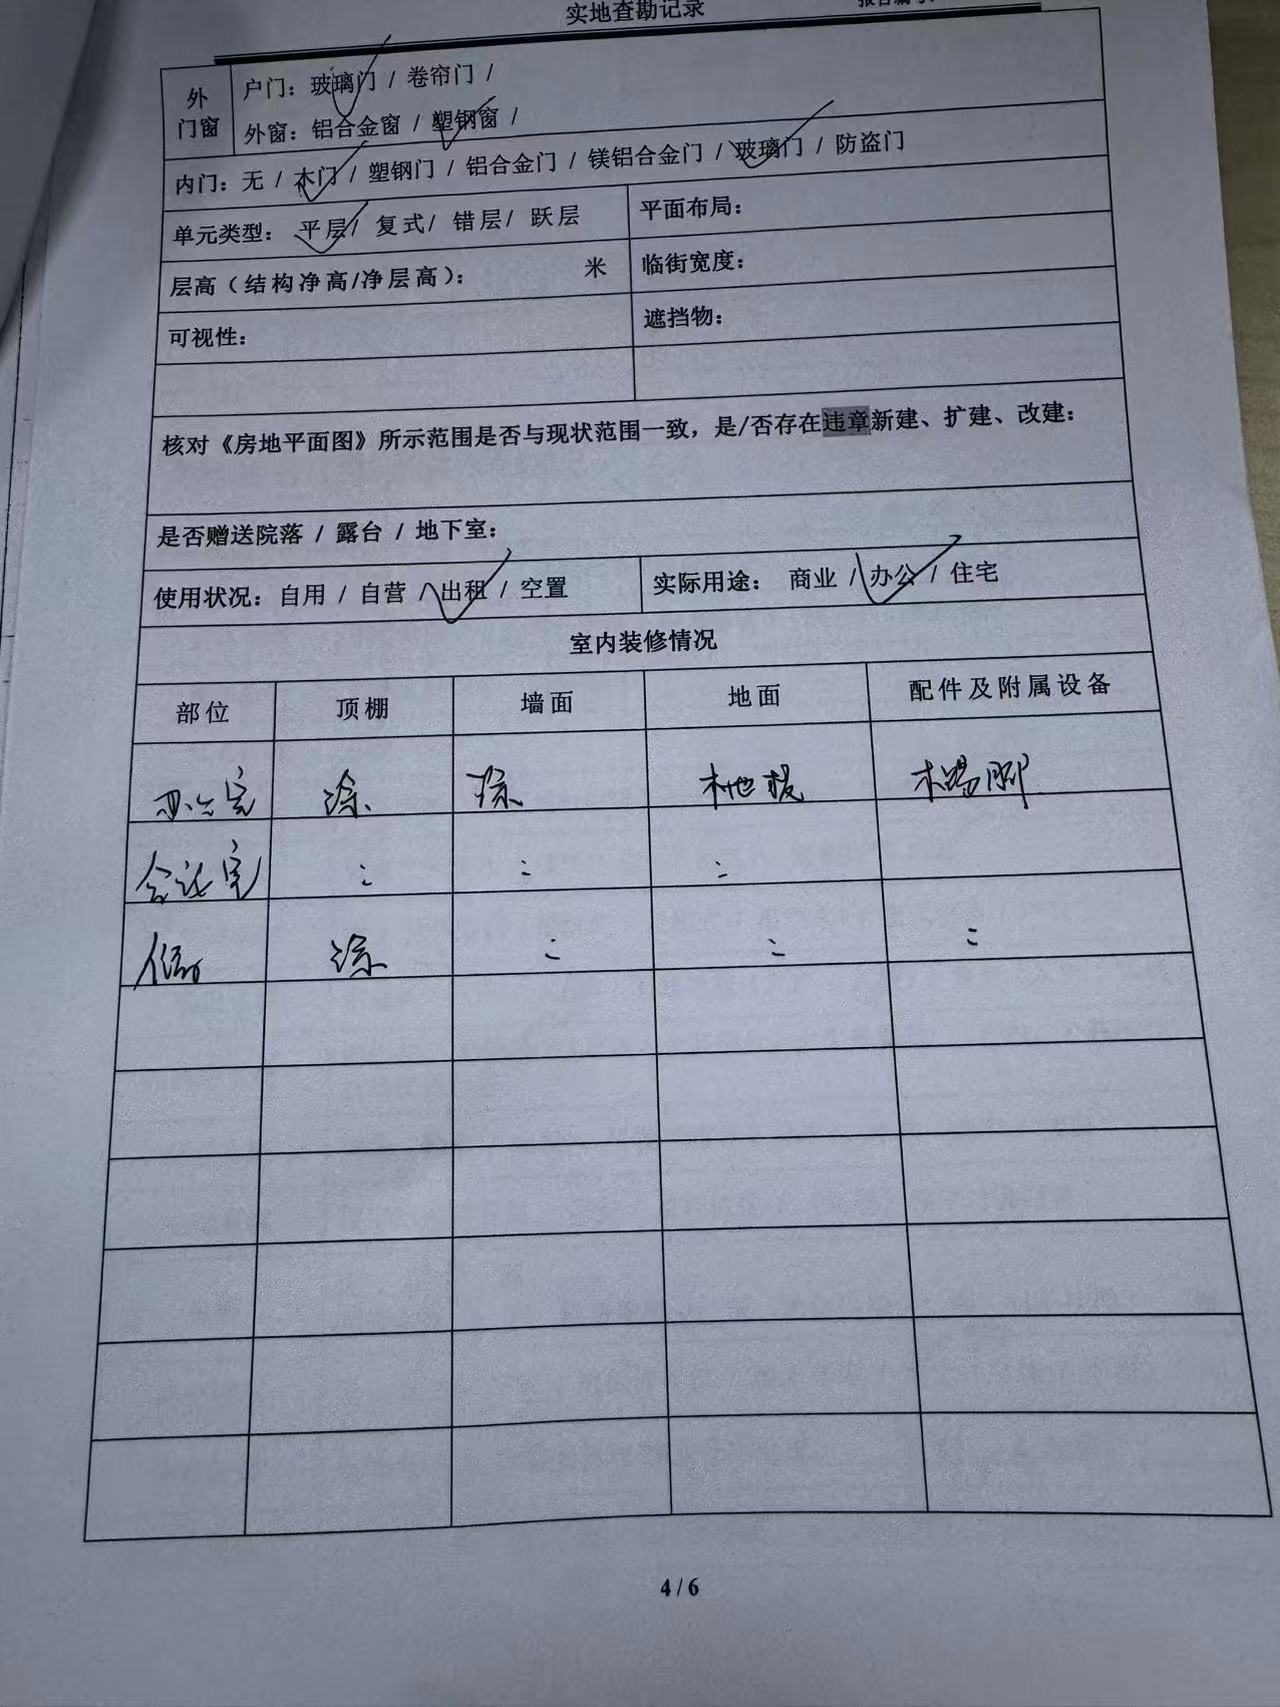 实地查勘记录
外门窗
户门：玻璃门 / 卷帘门 /
外窗：铝合金窗 / 塑钢窗 /
内门：无 / 木门 / 塑钢门 / 铝合金门 / 镁铝合金门 / 玻璃门 / 防盗门
单元类型： 平层/ 复式/ 错层/ 跃层 平面布局：
层高（结构净高/净层高）： 米 临街宽度：
可视性： 遮挡物：
核对《房地平面图》所示范围是否与现状范围一致，是/否存在违章新建、扩建、改建：
是否赠送院落 / 露台 / 地下室：
使用状况：自用 / 自营 / 出租 / 空置 实际用途： 商业 / 办公 / 住宅
室内装修情况
部位 顶棚 墙面 地面 配件及附属设备
办公室 涂 涂 木地板 木踢脚
会议室 〃 〃 〃
涂 〃 〃 〃
4 / 6